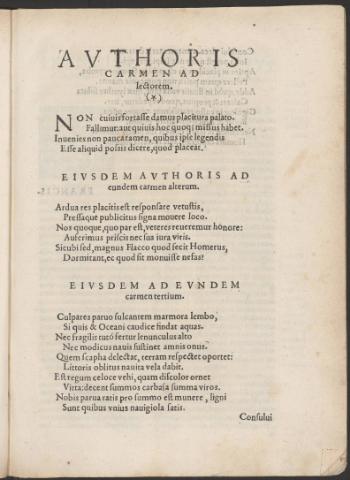 AVTHORIS
CARMEN AD
lectorem.
(*)
NON cuiuis fortasse damus placitura palato.
Fallimur: aut quiuis hoc quoque missius habet.
Inuenies non pauca tamen, quibus ipse legendis
Esse aliquid possis dicere, quod placeat.
EIVSDEM AVTHORIS AD
eundem carmen alterum.
Ardua res placitis est responsare vetustis,
Pressaque publicitus signa mouere loco.
Nos quoque, quo par est, veteres reueremur honore:
Auferimus priscis nec sua iura viris.
Sicubi sed, magnus Flacco quod fecit Homerus,
Dormitant, ec quod sit monuisse nefas?
EIVSDEM AD EVNDEM
carmen tertium.
Culpares paruo sulcantem marmora lembo,
Si quis & Oceani caudice findat aquas.
Nec fragilis tutò fertur lenunculus alto
Nec modicus nauis sustinet amnis onus.
Quem scapha delectat, terram respectet oportet:
Littoris oblitus nauita vela dabit.
Est regum celoce vehi, quam discolor ornet
Vitta: decent summos carbasa summa viros.
Nobis parua ratis pro summo est munere, ligni
Sunt quibus vnius nauigiola satis.
Consului